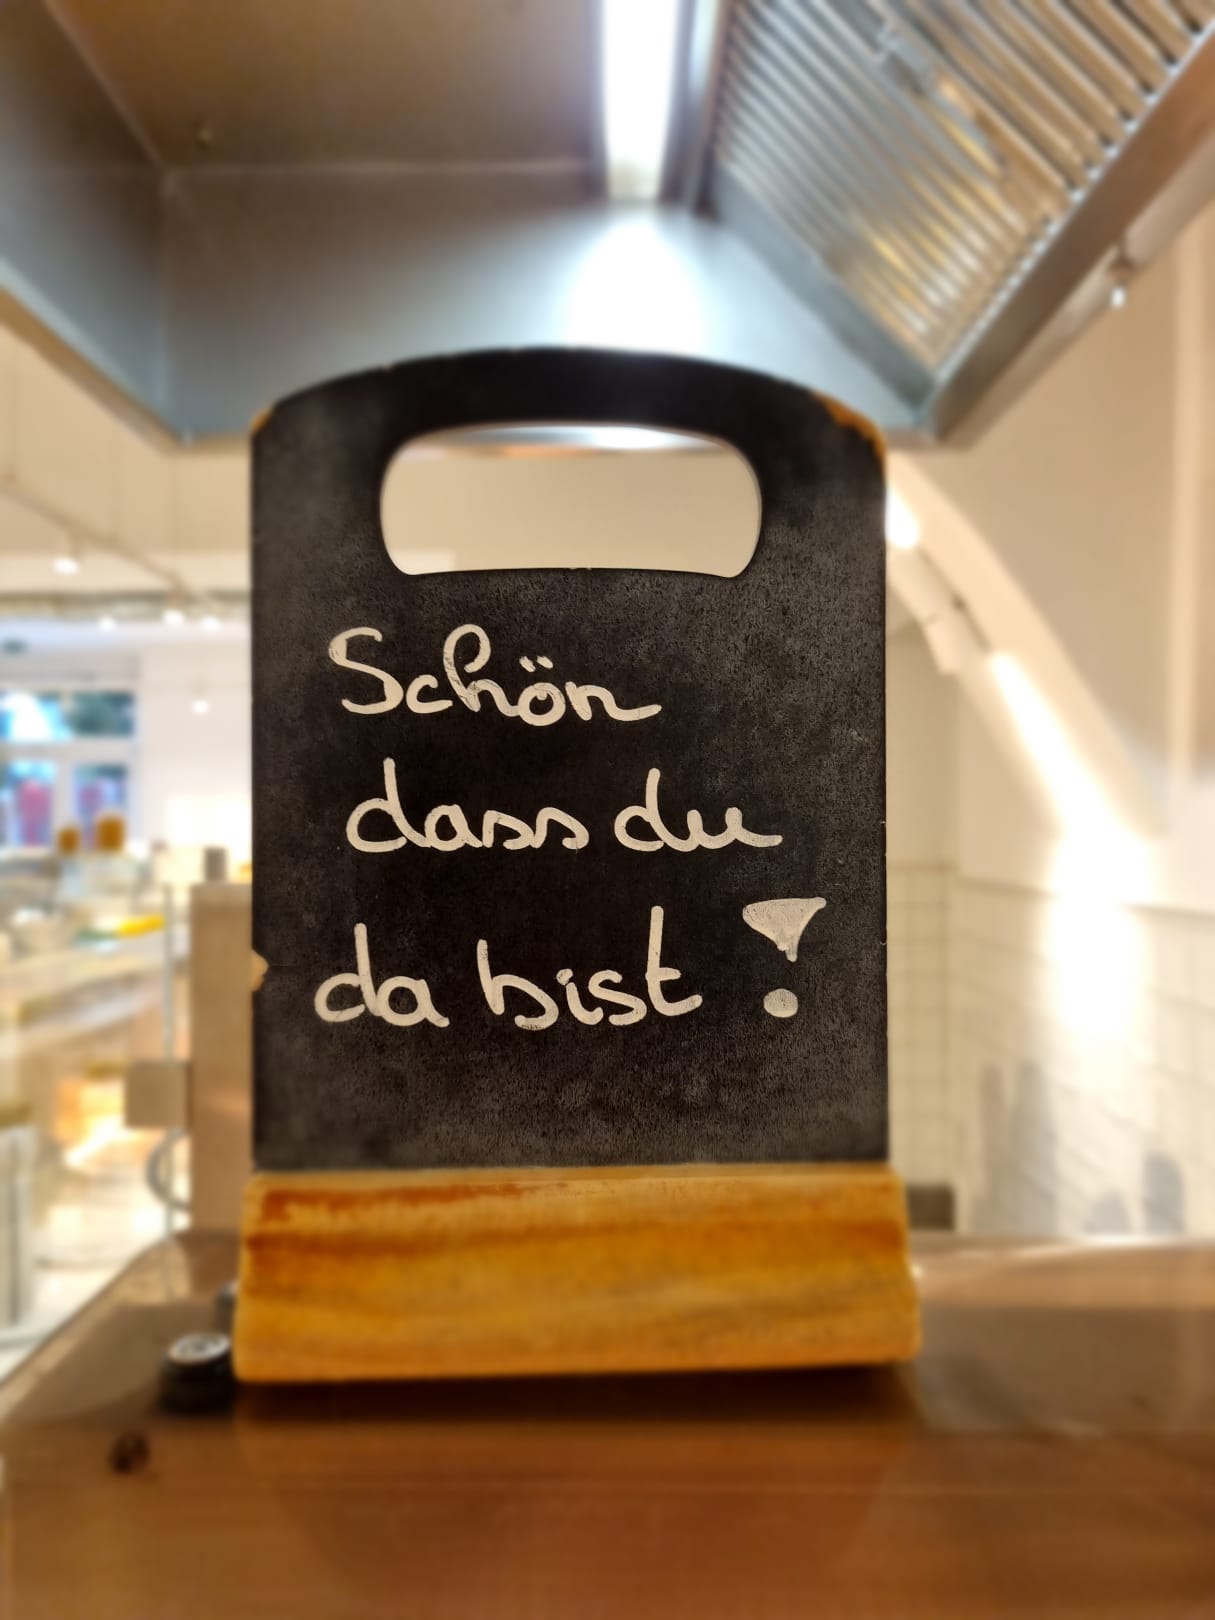 Schön
dass du
da bist !